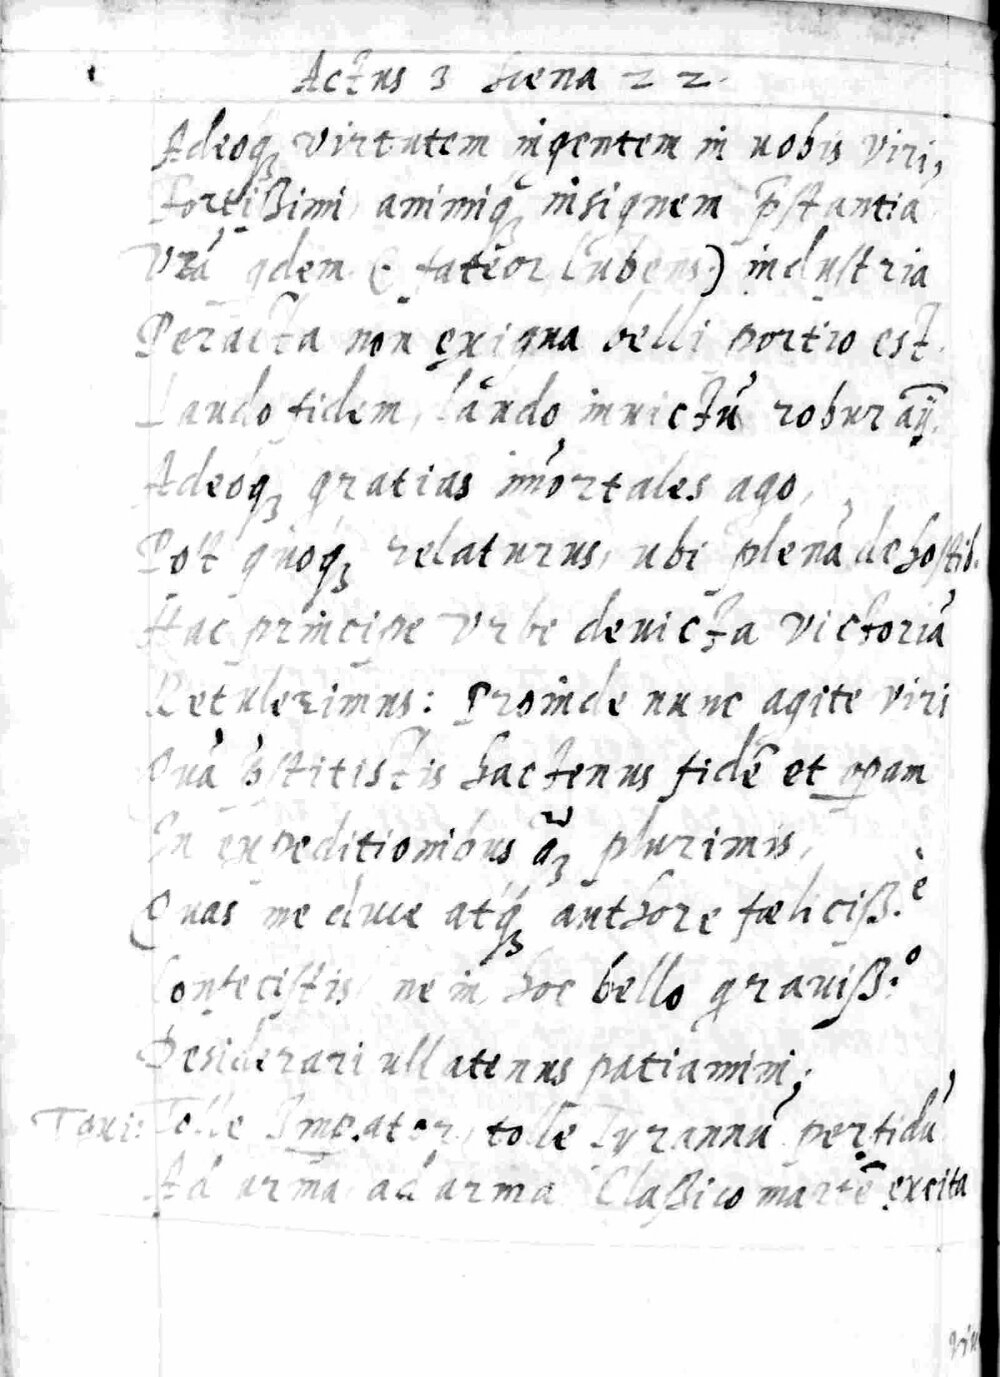 Actus 3 Scena 22.
Adeoq; virtutem ingentem in uobis viri,
Fortißimi animiq; insignem p̄stantia
Vrā qdem (& fateor lubens) industria
Peracta non exigua belli portio est.
Laudo fidem, laudo inuictū robur aīj.
Adeoq; gratias im̄ortales ago,
Post quoq; relaturus, ubi plenā de hostib.
Hac principe Vrbe deuicta victoriā
Retulerimus: Proinde nunc agite viri
Quā p̄stitistis hactenus fidē et opam
In expeditionibus plurimis,
Quas me duce atq; authore fæliciß.è
Confecistis, ne in hoc bello grauiß:o
Desiderari ullatenus patiamini;
Toxi: Tolle Imp.ator, tolle Tyrannū perfidū
Ad arma ad arma Claßico martē excita